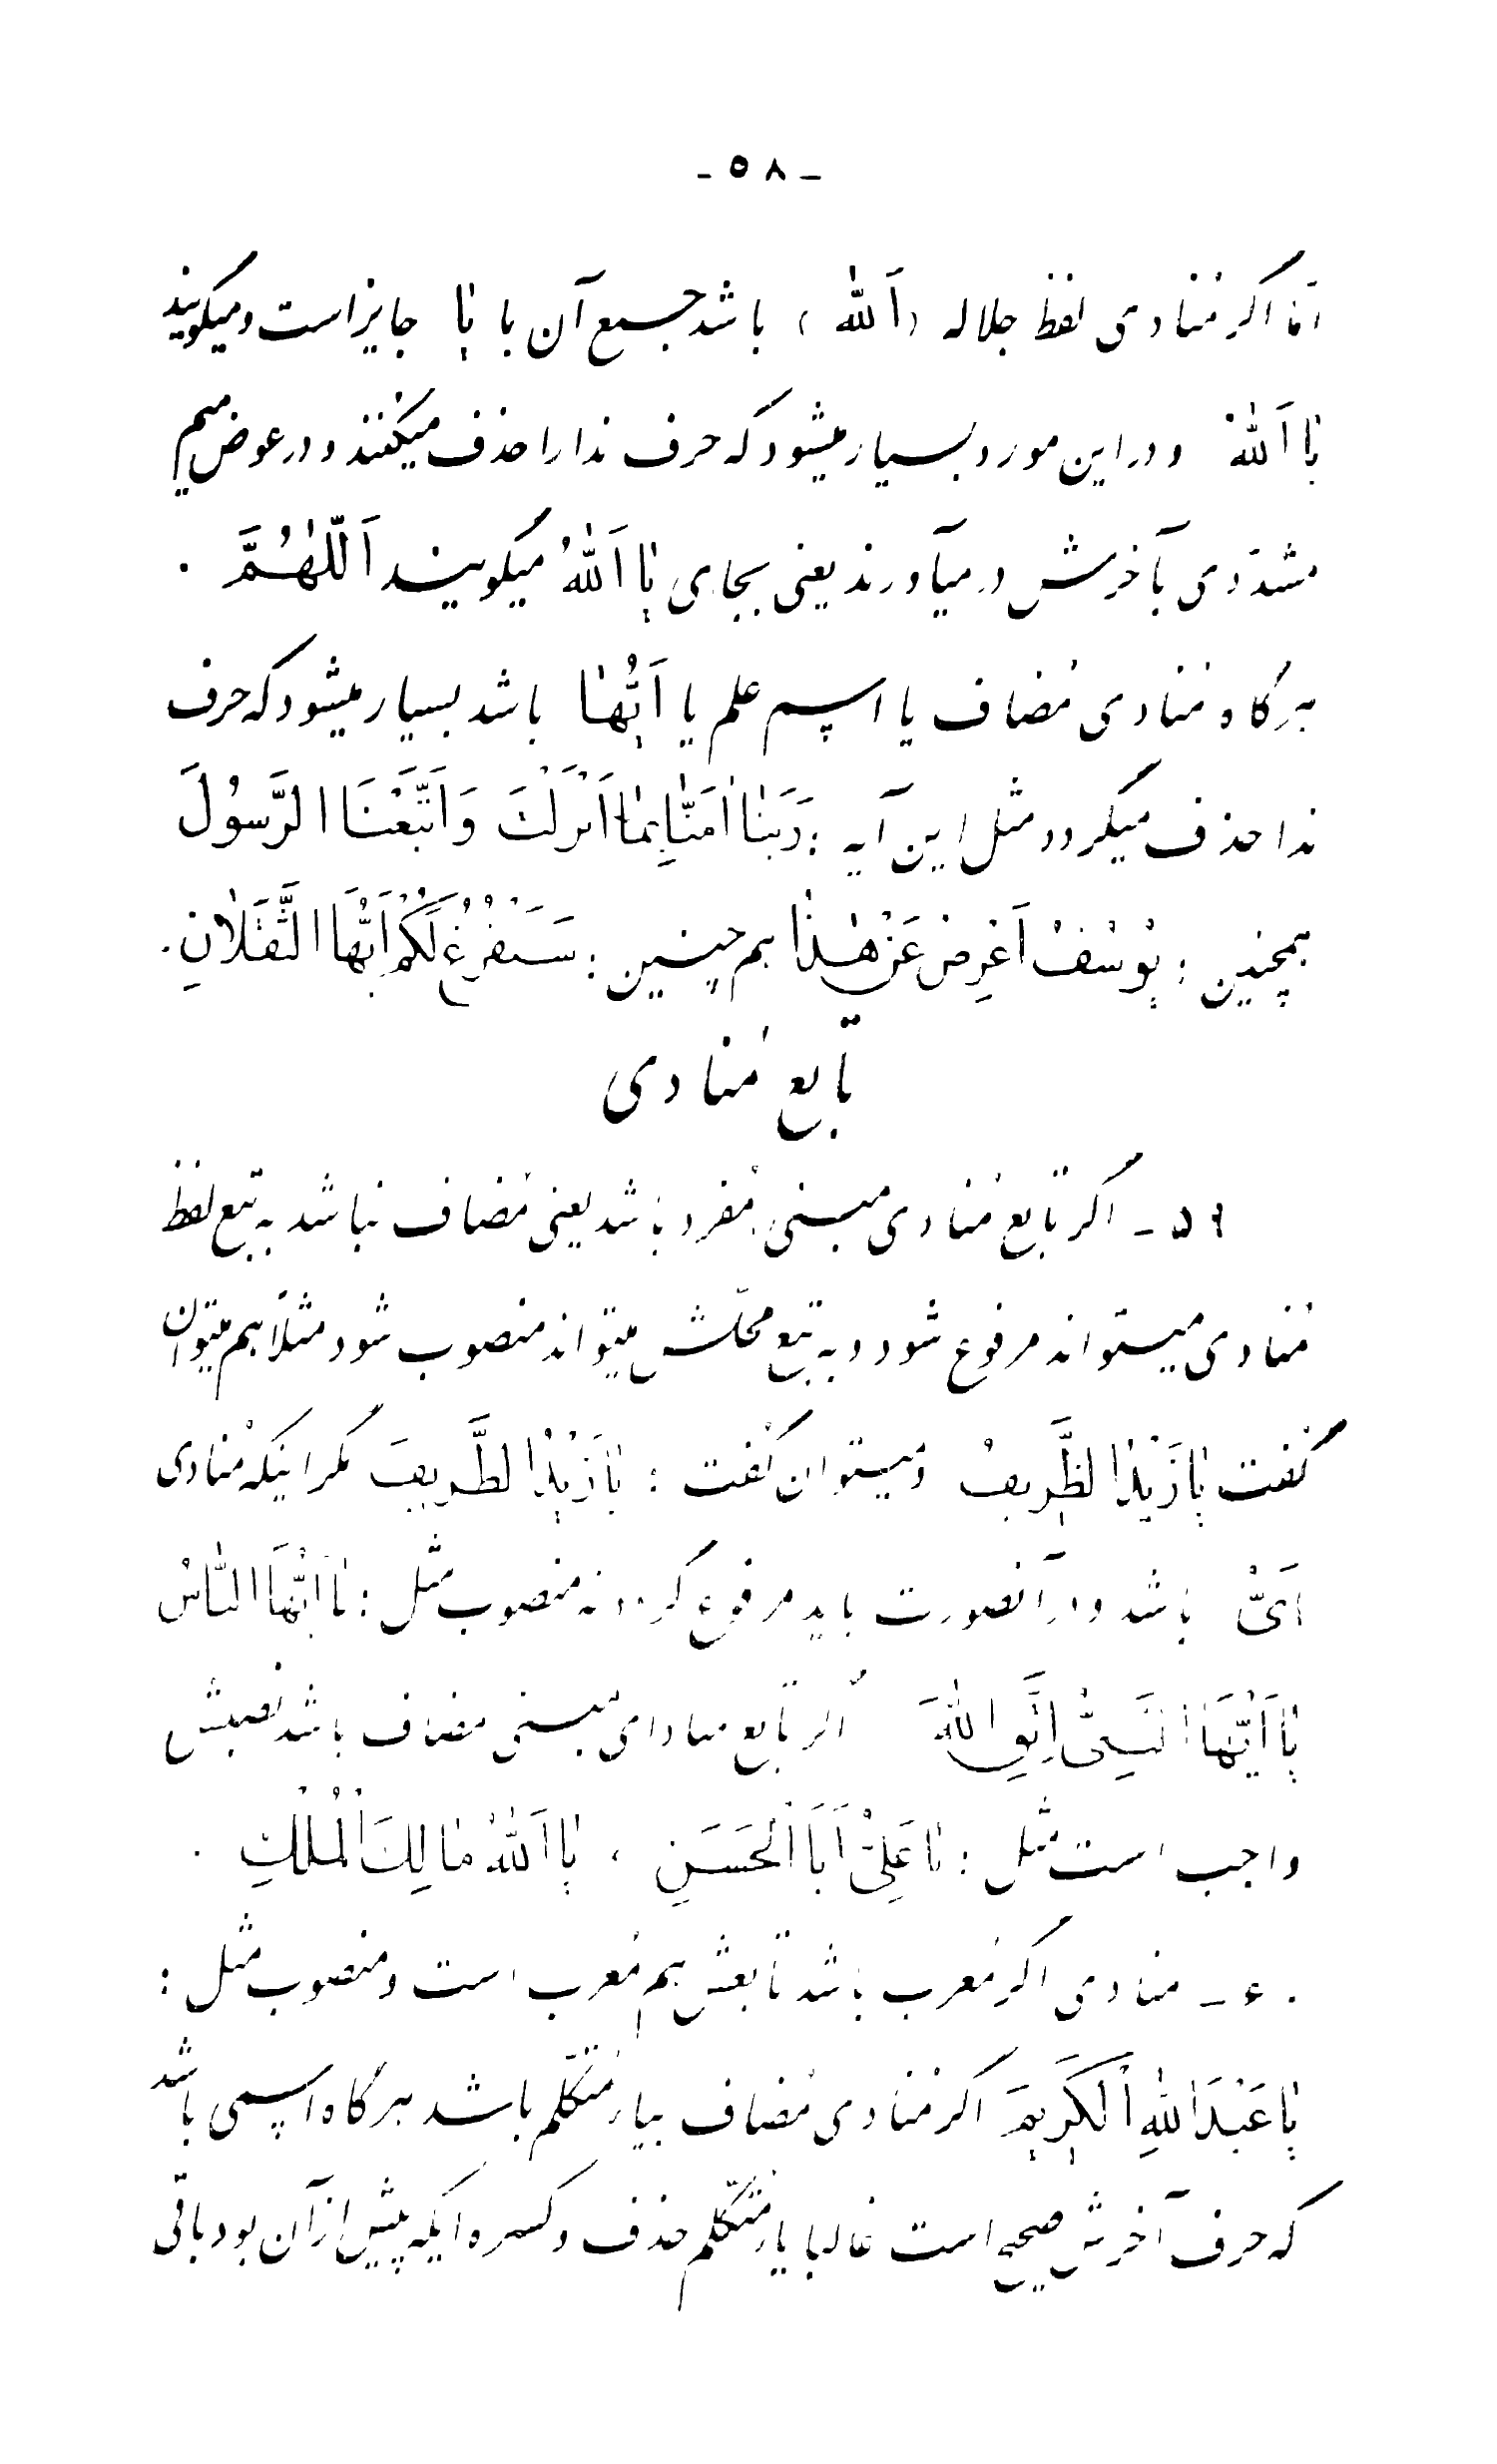 - ۵۸ -
امّا اگر مُنادی لفظ جلاله (اَللّٰه) باشد جمع آن با یٰا جایز است و میگویند
یٰا اَللّٰهُ و در این مورد بسیار میشود که حرف ندا را حذف میکنند و در عوض میم
مشدّدی بآخرش در میآورند یعنی بجای یٰا اَللّٰهُ میگویند اَللّٰهُمَّ .
هرگاه مُنادی مُضاف یا اسم علم یا اَیُّهٰا باشد بسیار میشود که حرف
ندا حذف میگردد مثل این آیه : رَبَّنٰا اٰمَنّٰا بِمٰا اَنْزَلْتَ وَ اتَّبَعْنَا الرَّسُولَ
همچنین : یُوسُفُ اَعْرِضْ عَنْ هٰذٰا هم چنین : سَنَفْرُغُ لَکُمْ اَیُّهَا الثَّقَلٰانِ .
تابع مُنادی
۵۹ - اگر تابع مُنادی مبنی مُفرد باشد یعنی مُضاف نباشد به تبع لفظ
مُنادی میتواند مرفوع شود و به تبع محلّش میتواند منصوب شود مثلاً هم میتوان
گفت یٰا زَیْدُ الظَّرِیفُ و میتوان گفت : یٰا زَیْدُ الظَّرِیفَ مگر اینکه مُنادی
اَیُّ باشد در آنصورت باید مرفوع گردد نه منصوب مثل : یٰا اَیُّهَا النّٰاسُ
یٰا اَیُّهَا النَّبِیُّ اتَّقِ اللّٰهَ اگر تابع منادای مبنی مضاف باشد نصبش
واجب است مثل : یٰا عَلِیُّ اَبَا الْحَسَنِ ، یٰا اَللّٰهُ مٰالِکَ الْمُلْکِ .
۶۰ - منادی اگر مُعرب باشد تابعش هم مُعرب است و منصوب مثل :
یٰا عَبْدَ اللّٰهِ الْکَرِیمَ اگر مُنادی مُضاف بیاء مُتکلّم باشد هرگاه اسمی باشد
که حرف آخرش صحیح است غالبا یاء مُتکلّم حذف و کسره ایکه پیش از آن بود باقی